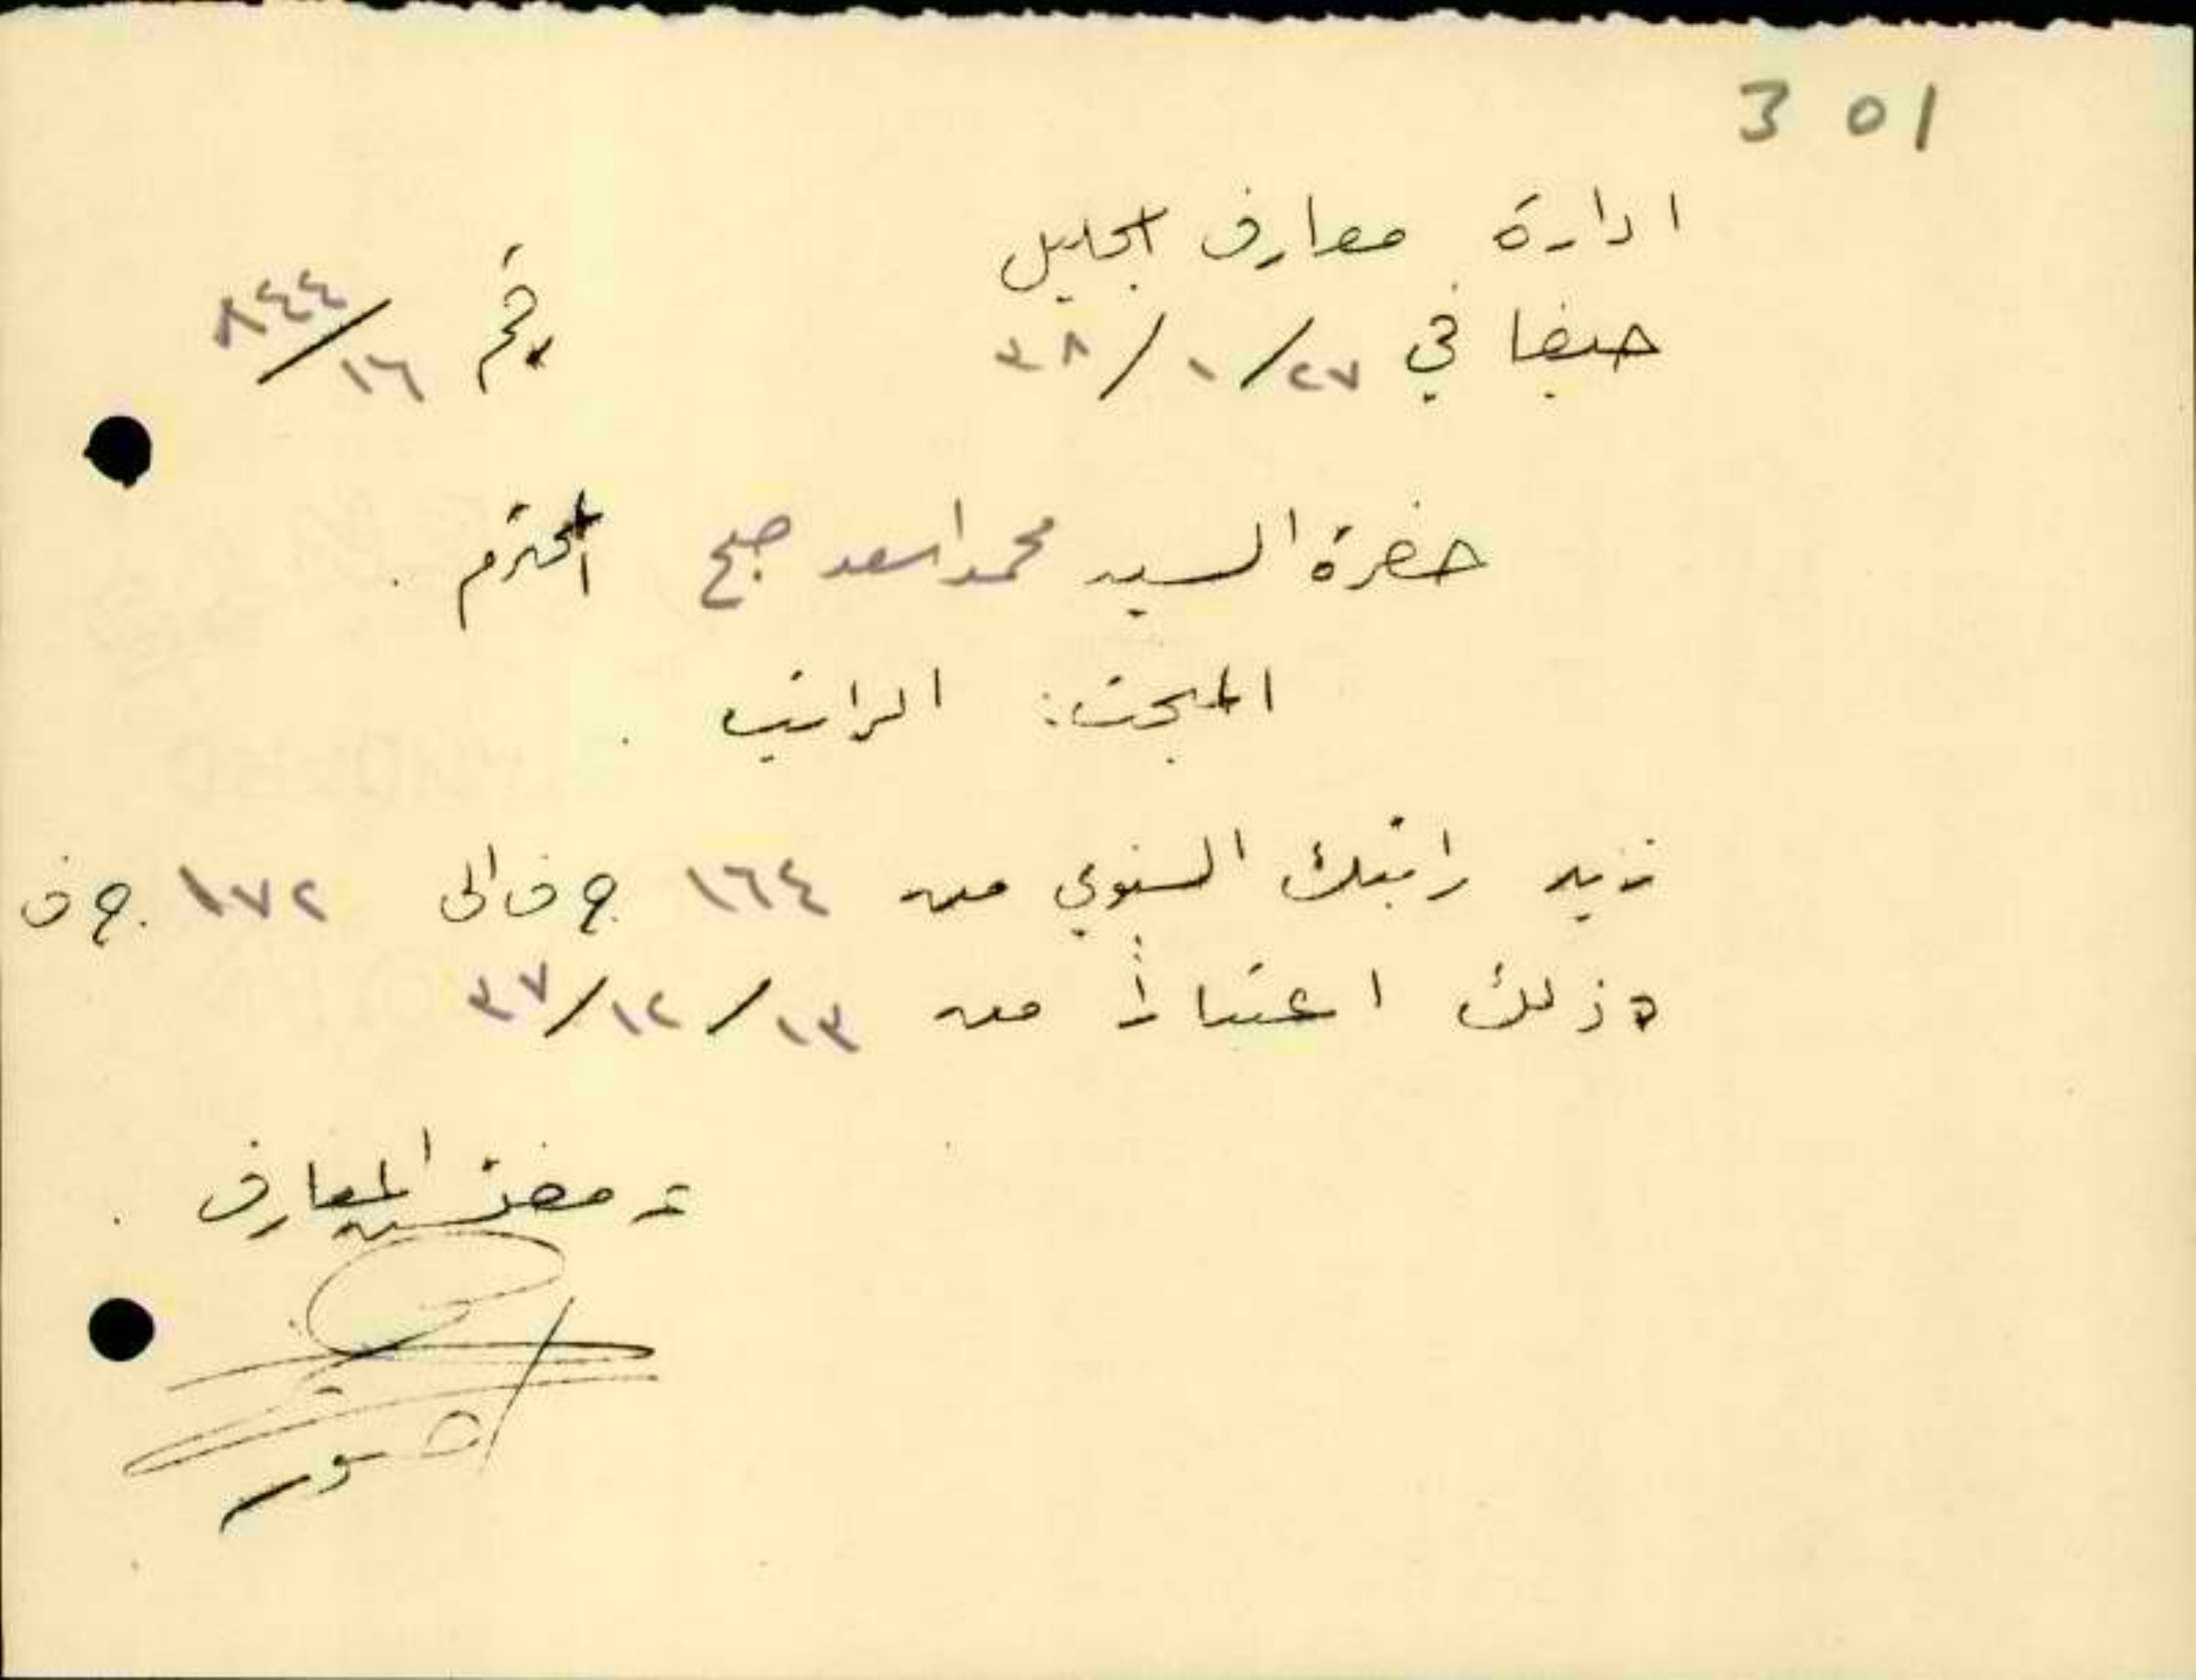 301
ادارة معارف الجليل
حيفا في ٢٧/١/٣٨ رقم ١٦/٨٤٤
حضرة السيد محمد اسعد صبح المحترم .
المبحث: الراتب .
زيد راتبك السنوي من ١٦٤ ج ف الى ١٧٢ ج ف
وذلك اعتباراً من ١٣/١٢/٣٧
مفتش المعارف .